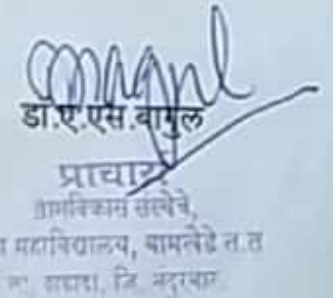 डॉ.ए.एस.बागुल
प्राचार्य
ग्रामविकास संस्थेचे,
महाविद्यालय, बामखेडे त.त
ता. शहादा, जि. नंदुरबार